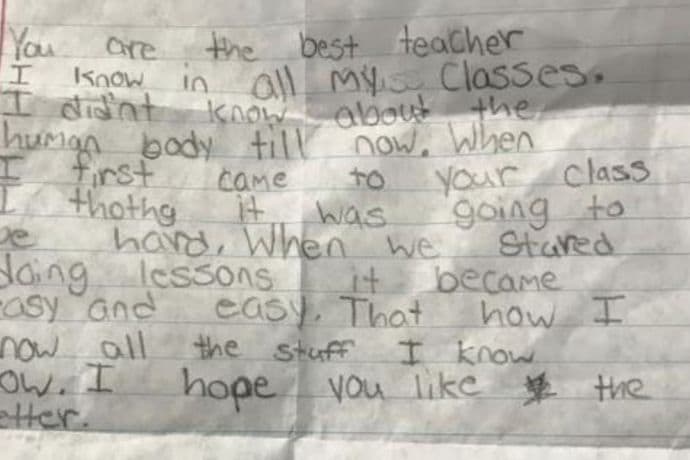 You are the best teacher
I know in all my classes.
I didn't know about the
human body till now. When
I first came to your class
I thothg it was going to
be hard. When we Stared
doing lessons it became
easy and easy. That how I
now all the stuff I know
ow. I hope you like the
etter.